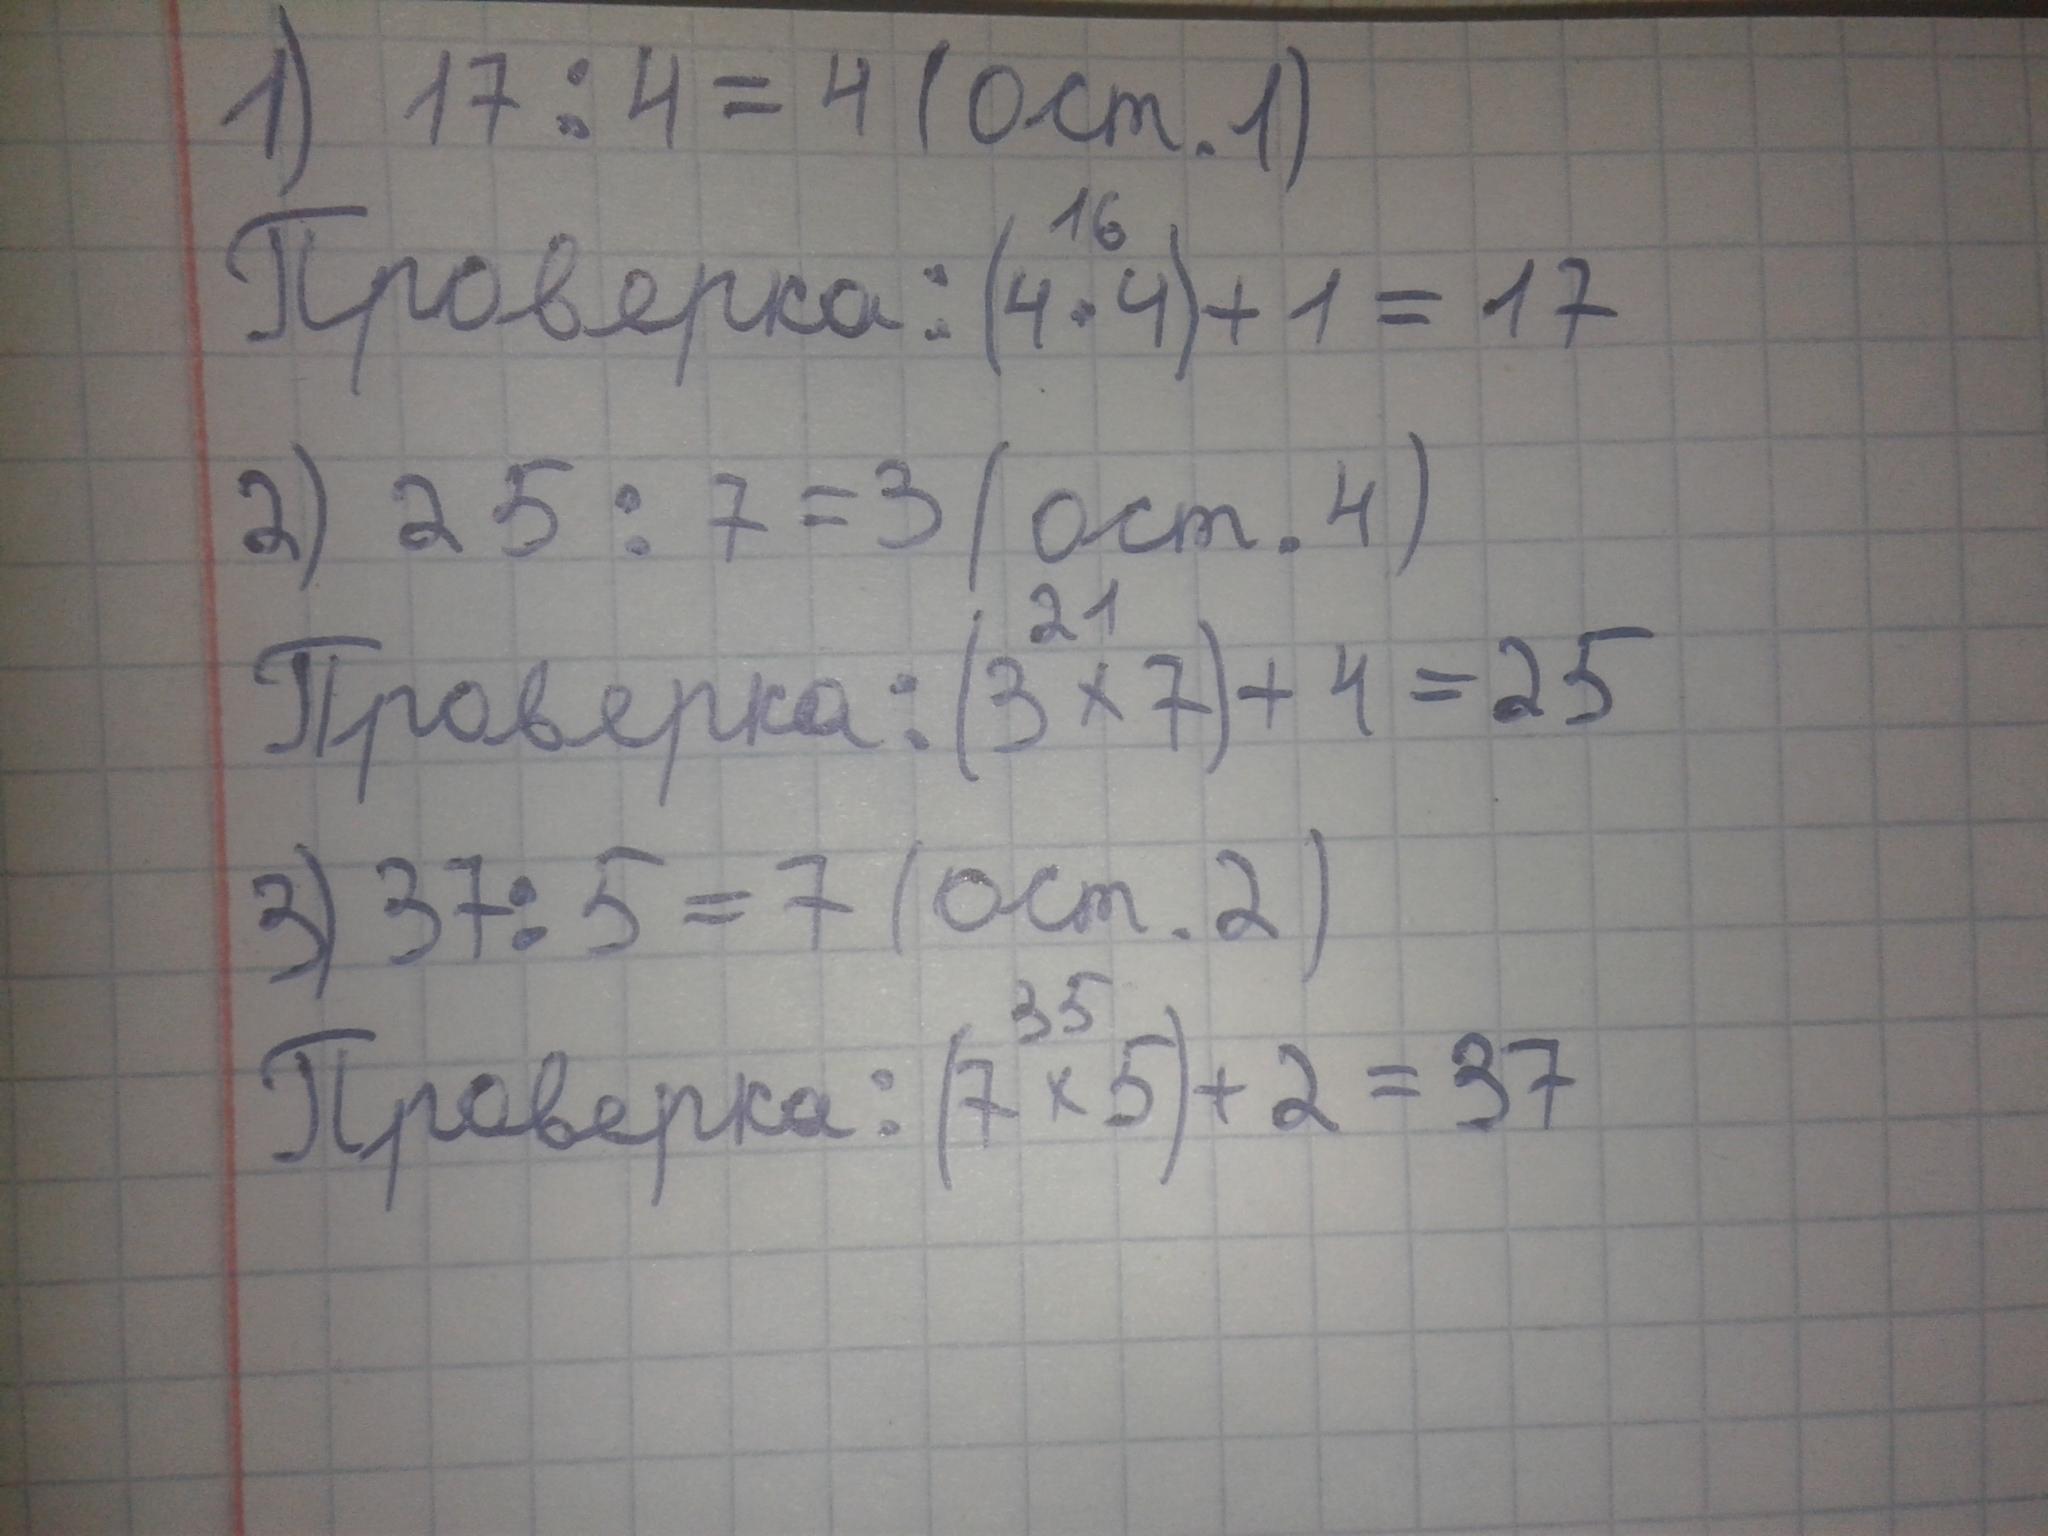 1) 17 : 4 = 4 (ост. 1)
16
Проверка: (4 · 4) + 1 = 17
2) 25 : 7 = 3 (ост. 4)
21
Проверка: (3 × 7) + 4 = 25
3) 37 : 5 = 7 (ост. 2)
35
Проверка: (7 × 5) + 2 = 37